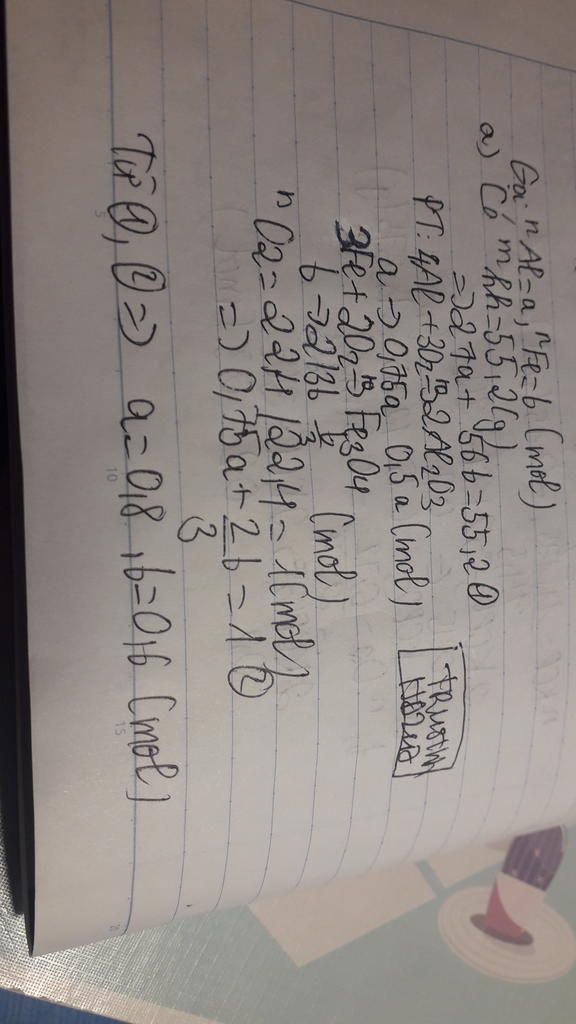 Gọi nAl=a, nFe=b (mol)
a) Có mhh=55,2(g)
=>27a+56b=55,2 ①
PT: 4Al+3O2-to>2Al2O3
a->0,75a 0,5a (mol)
3Fe+2O2-to>Fe3O4
b->2/3b b/3 (mol)
nO2=22,4/22,4=1(mol)
=>0,75a+2/3b=1 ②
Từ ①,②=> a=0,8, b=0,6 (mol)